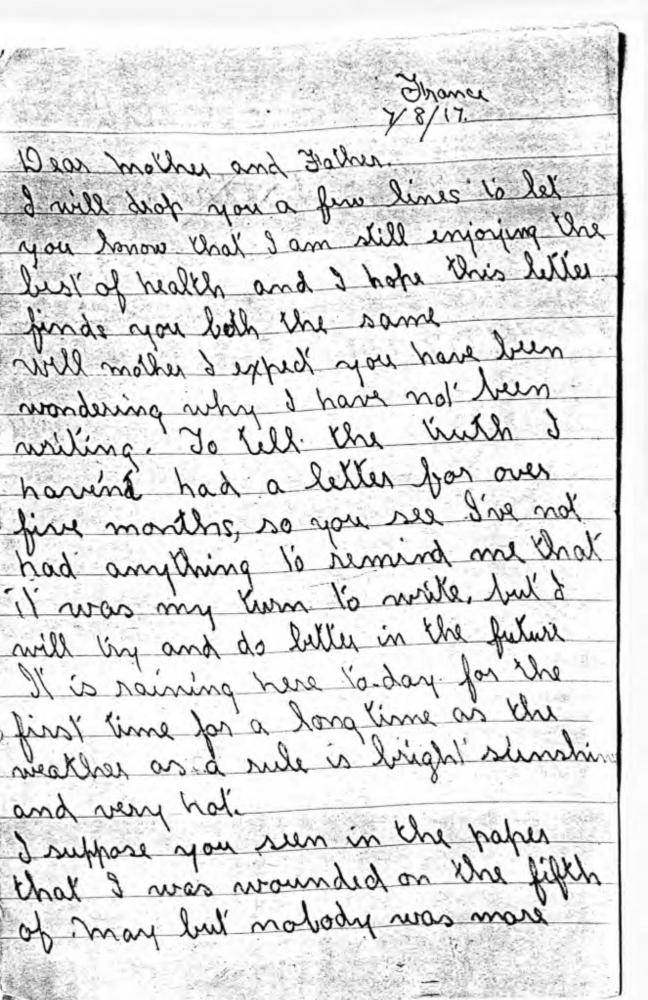 France
7/8/17.
Dear Mother and Father.
I will drop you a few lines to let
you know that I am still enjoying the
best of health and I hope this letter
finds you both the same
will mother I expect you have been
wondering why I have not been
writing. To tell the truth I
havent had a letter for over
five months, so you see I've not
had anything to remind me that
it was my turn to write, but I
will try and do better in the future
It is raining here to-day for the
first time for a long time as the
weather as a rule is bright sunshin
and very hot.
I suppose you seen in the paper
that I was wounded on the fifth
of May but nobody was more